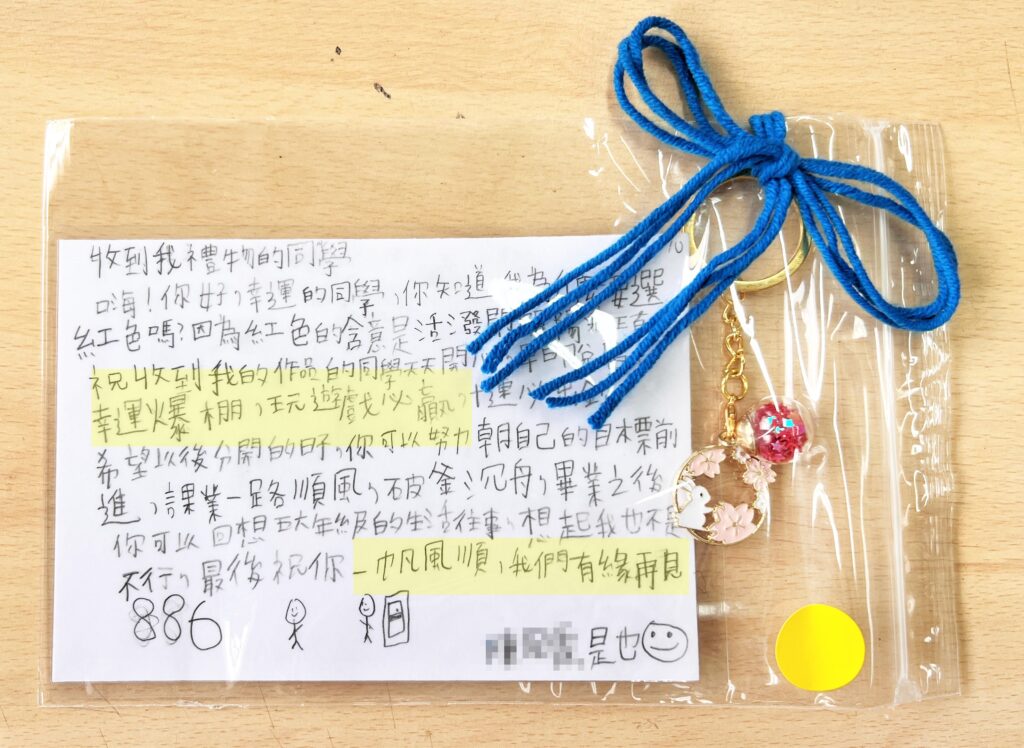 收到我禮物的同學
嗨!你好,幸運的同學,你知道我為
選
紅色嗎?因為紅色的含意是活潑開
祝收到我的作品的同學天天開
幸運爆棚,玩遊戲必贏,
運必
希望以後分開的日子,你可以努力朝自己的目標前
進,課業一路順風,破釜沉舟,畢業之後
你可以回想五六年級的生活往事,想起我也不是
不行,最後祝你一帆風順,我們有緣再見
886
是也